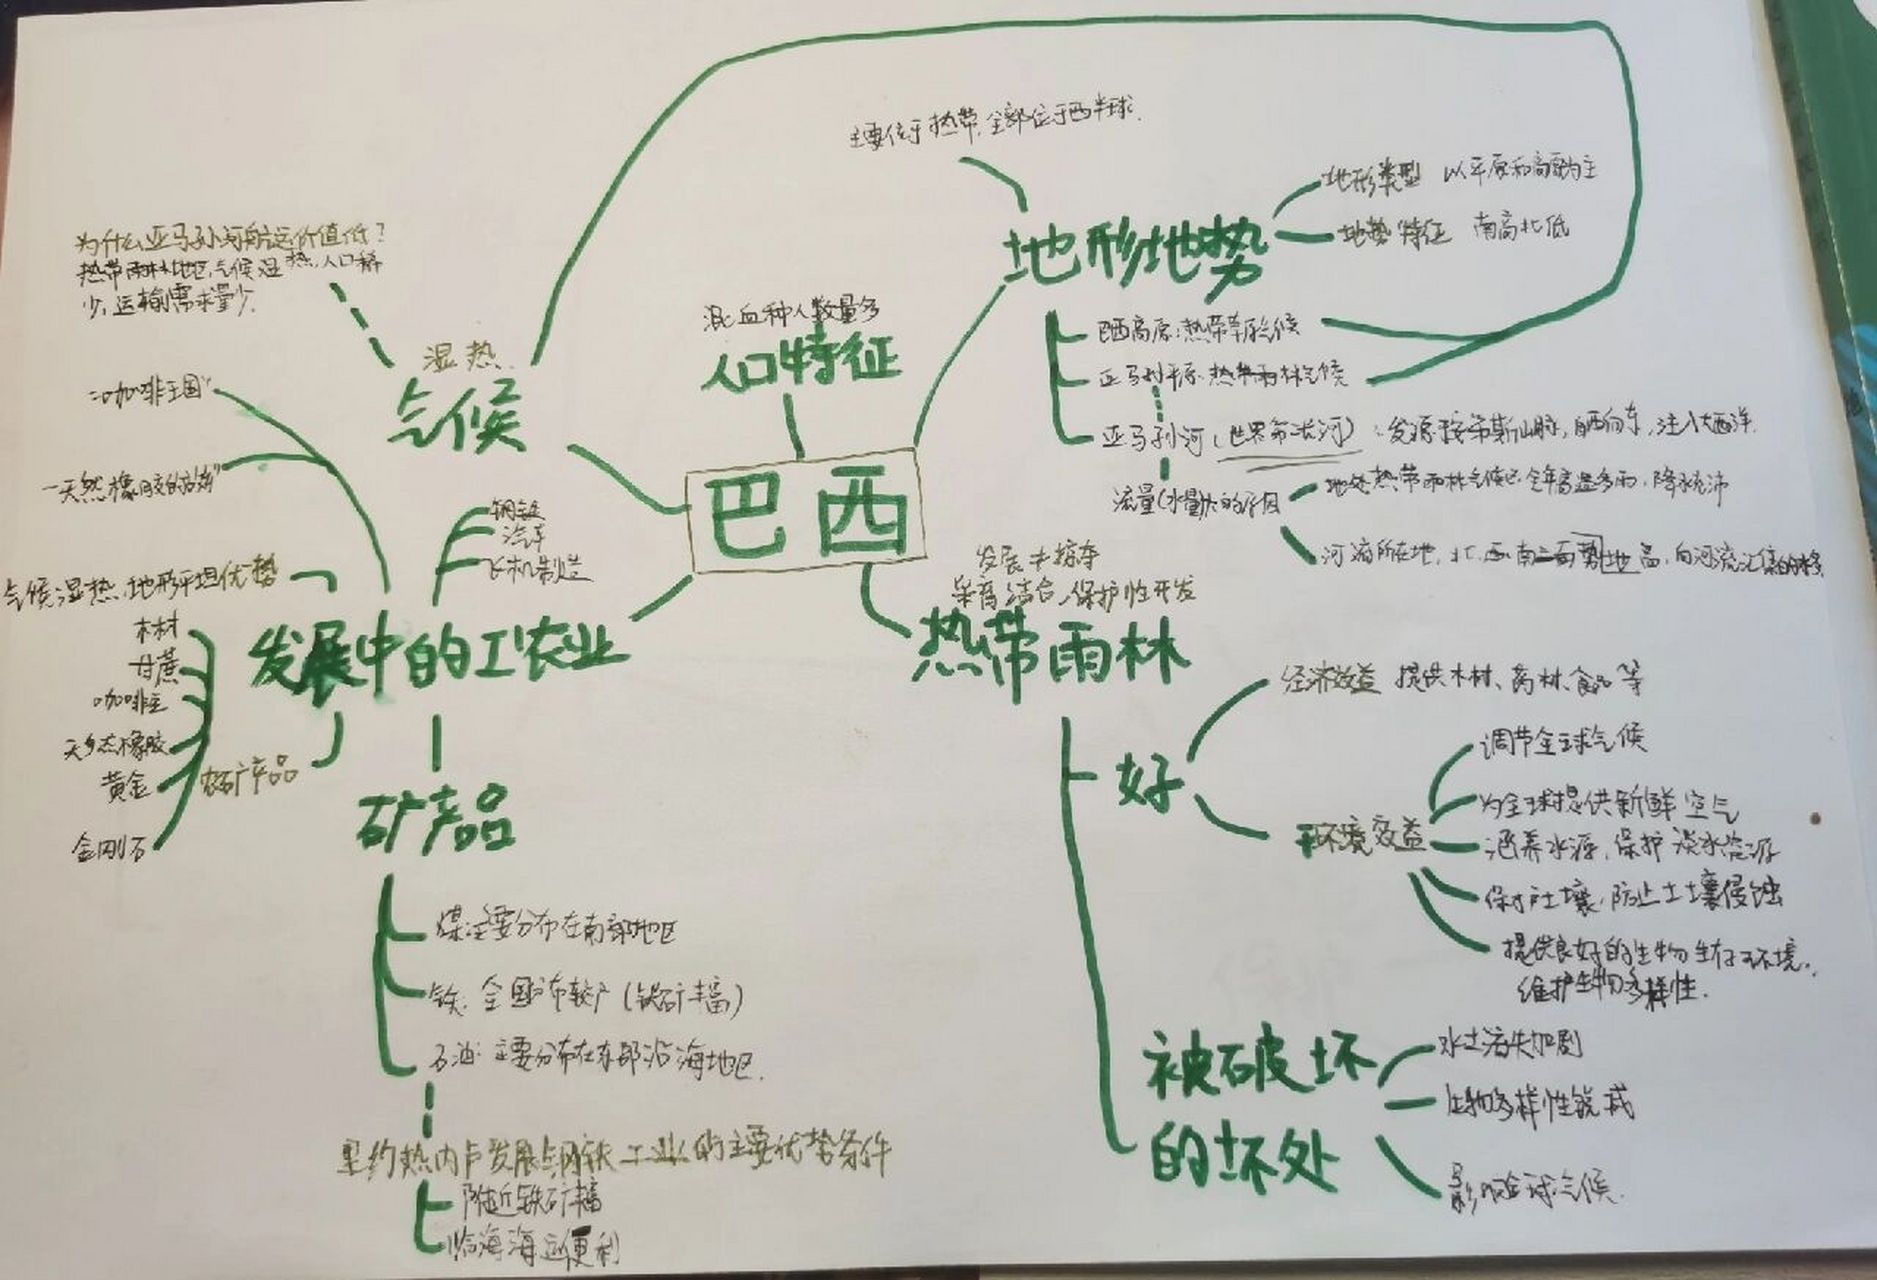 主要位于热带,全部位于西半球.
地形类型 以平原和高原为主
地形地势
地势特征 南高北低
巴西高原:热带草原气候
亚马孙平原:热带雨林气候
亚马孙河(世界第二长河):发源于安第斯山脉,自西向东,注入大西洋.
流量(水量)大的原因
地处热带雨林气候区,全年高温多雨,降水充沛
河流所在地,北、西、南三面势地高,向河流汇集的水多
为什么亚马孙河航运价值低?
热带雨林地区,气候湿热,人口稀
少,运输需求量少.
湿热
气候
混血种人数量多
人口特征
巴西
"咖啡王国"
"天然橡胶的故乡"
钢铁
汽车
飞机制造
气候湿热,地形平坦优势
发展中的工农业
木材
甘蔗
咖啡豆
天然橡胶
黄金
金刚石
农矿产品
矿产品
煤:主要分布在南部地区
铁:全国分布较广(铁矿丰富)
石油:主要分布在东部沿海地区.
里约热内卢发展钢铁工业的主要优势条件
附近铁矿丰富
临海海运便利
采育结合,保护性开发
热带雨林
好
经济效益 提供木材、药材、食品等
环境效益
调节全球气候
为全球提供新鲜空气
涵养水源,保护淡水资源
保护土壤,防止土壤侵蚀
提供良好的生物生存环境,
维护生物多样性.
被破坏
的坏处
水土流失加剧
生物多样性锐减
影响全球气候.